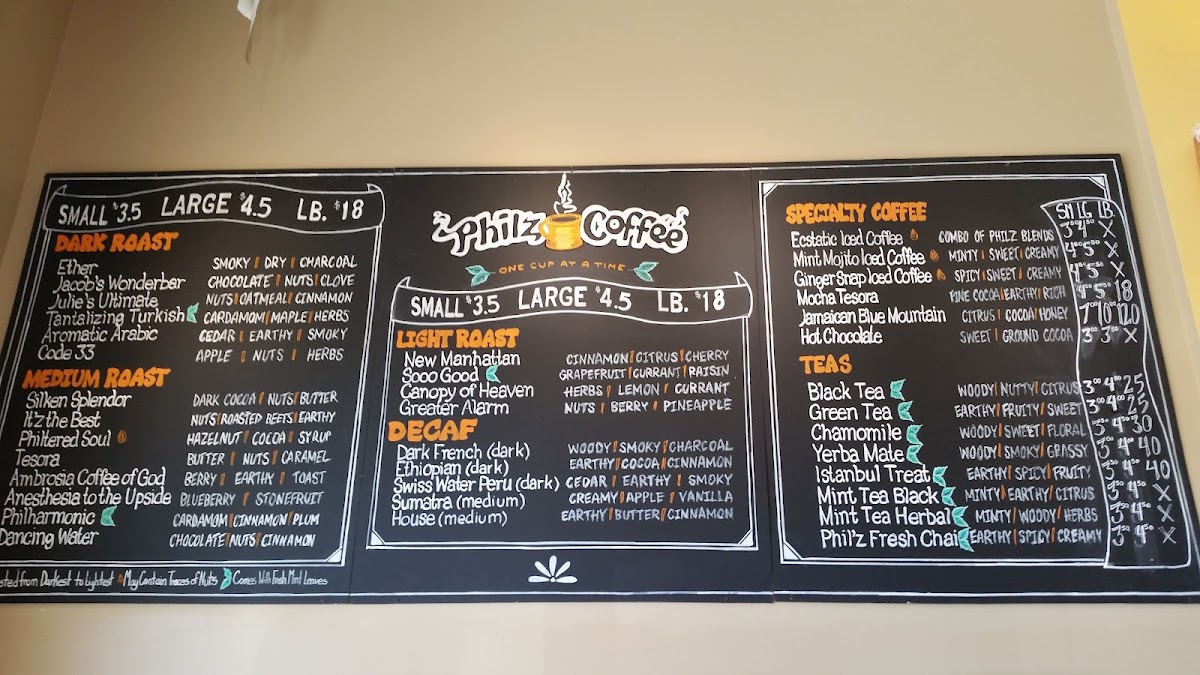 SMALL $3.5 LARGE $4.5 LB. $18
DARK ROAST
Ether SMOKY DRY CHARCOAL
Jacob's Wonderbar CHOCOLATE NUTS CLOVE
Julie's Ultimate NUTS OATMEAL CINNAMON
Tantalizing Turkish CARDAMOM MAPLE HERBS
Aromatic Arabic CEDAR EARTHY SMOKY
Code 33 APPLE NUTS HERBS
MEDIUM ROAST
Silken Splendor DARK COCOA NUTS BUTTER
It'z the Best NUTS ROASTED BEETS EARTHY
Philtered Soul HAZELNUT COCOA SYRUP
Tesora BUTTER NUTS CARAMEL
Ambrosia Coffee of God BERRY EARTHY TOAST
Anesthesia to the Upside BLUEBERRY STONEFRUIT
Philharmonic CARDAMOM CINNAMON PLUM
Dancing Water CHOCOLATE NUTS CINNAMON
sted from Darkest to Lightest May Contain Traces of Nuts Comes With Fresh Mint Leaves
Philz Coffee
ONE CUP AT A TIME
SMALL $3.5 LARGE $4.5 LB. $18
LIGHT ROAST
New Manhattan CINNAMON CITRUS CHERRY
Sooo Good GRAPEFRUIT CURRANT RAISIN
Canopy of Heaven HERBS LEMON CURRANT
Greater Alarm NUTS BERRY PINEAPPLE
DECAF
Dark French (dark) WOODY SMOKY CHARCOAL
Ethiopian (dark) EARTHY COCOA CINNAMON
Swiss Water Peru (dark) CEDAR EARTHY SMOKY
Sumatra (medium) CREAMY APPLE VANILLA
House (medium) EARTHY BUTTER CINNAMON
SPECIALTY COFFEE SM LG LB.
Ecstatic Iced Coffee COMBO OF PHILZ BLENDS 3.50 4.50 X
Mint Mojito Iced Coffee MINTY SWEET CREAMY X
Ginger Snap Iced Coffee SPICY SWEET CREAMY X
Mocha Tesora FINE COCOA EARTHY RICH 18
Jamaican Blue Mountain CITRUS COCOA HONEY
Hot Chocolate SWEET GROUND COCOA X
TEAS
Black Tea WOODY NUTTY CITRUS 3.00 4.00 25
Green Tea EARTHY FRUITY SWEET 3.00 4.00 25
Chamomile WOODY SWEET FLORAL 3.00 4.00 30
Yerba Mate WOODY SMOKY GRASSY 3.00 4.00 40
Istanbul Treat EARTHY SPICY FRUITY 40
Mint Tea Black MINTY EARTHY CITRUS X
Mint Tea Herbal MINTY WOODY HERBS X
Phil'z Fresh Chai EARTHY SPICY CREAMY X